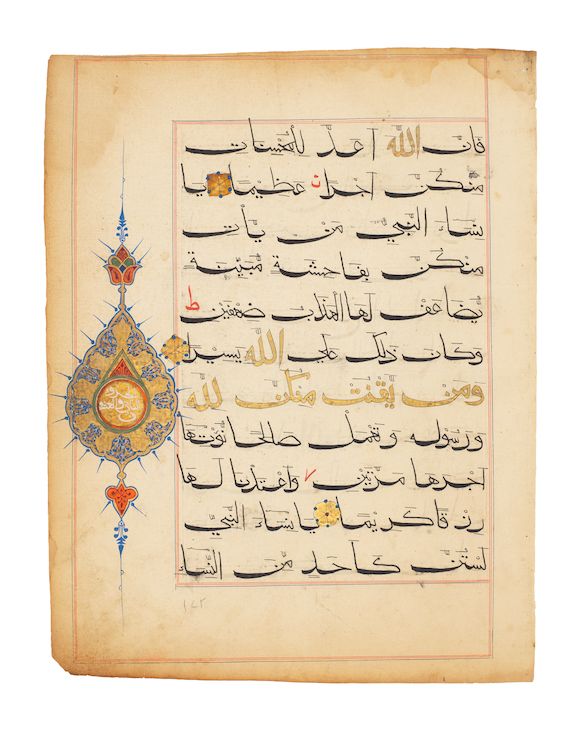 فَاِنَّ اللّٰهَ اَعَدَّ لِلْمُحْسِنَاتِ
مِنْكُنَّ اَجْرًا عَظِيْمًا يَا
نِسَاءَ النَّبِيِّ مَنْ يَأْتِ
مِنْكُنَّ بِفَاحِشَةٍ مُبَيِّنَةٍ
يُضَاعَفْ لَهَا الْعَذَابُ ضِعْفَيْنِ ط
وَكَانَ ذٰلِكَ عَلَى اللّٰهِ يَسِيْرًا
وَمَنْ يَقْنُتْ مِنْكُنَّ لِلّٰهِ
وَرَسُوْلِهِ وَتَعْمَلْ صَالِحًا نُؤْتِهَا
اَجْرَهَا مَرَّتَيْنِ وَاَعْتَدْنَا لَهَا
رِزْقًا كَرِيْمًا يَا نِسَاءَ النَّبِيِّ
لَسْتُنَّ كَاَحَدٍ مِنَ النِّسَاءِ